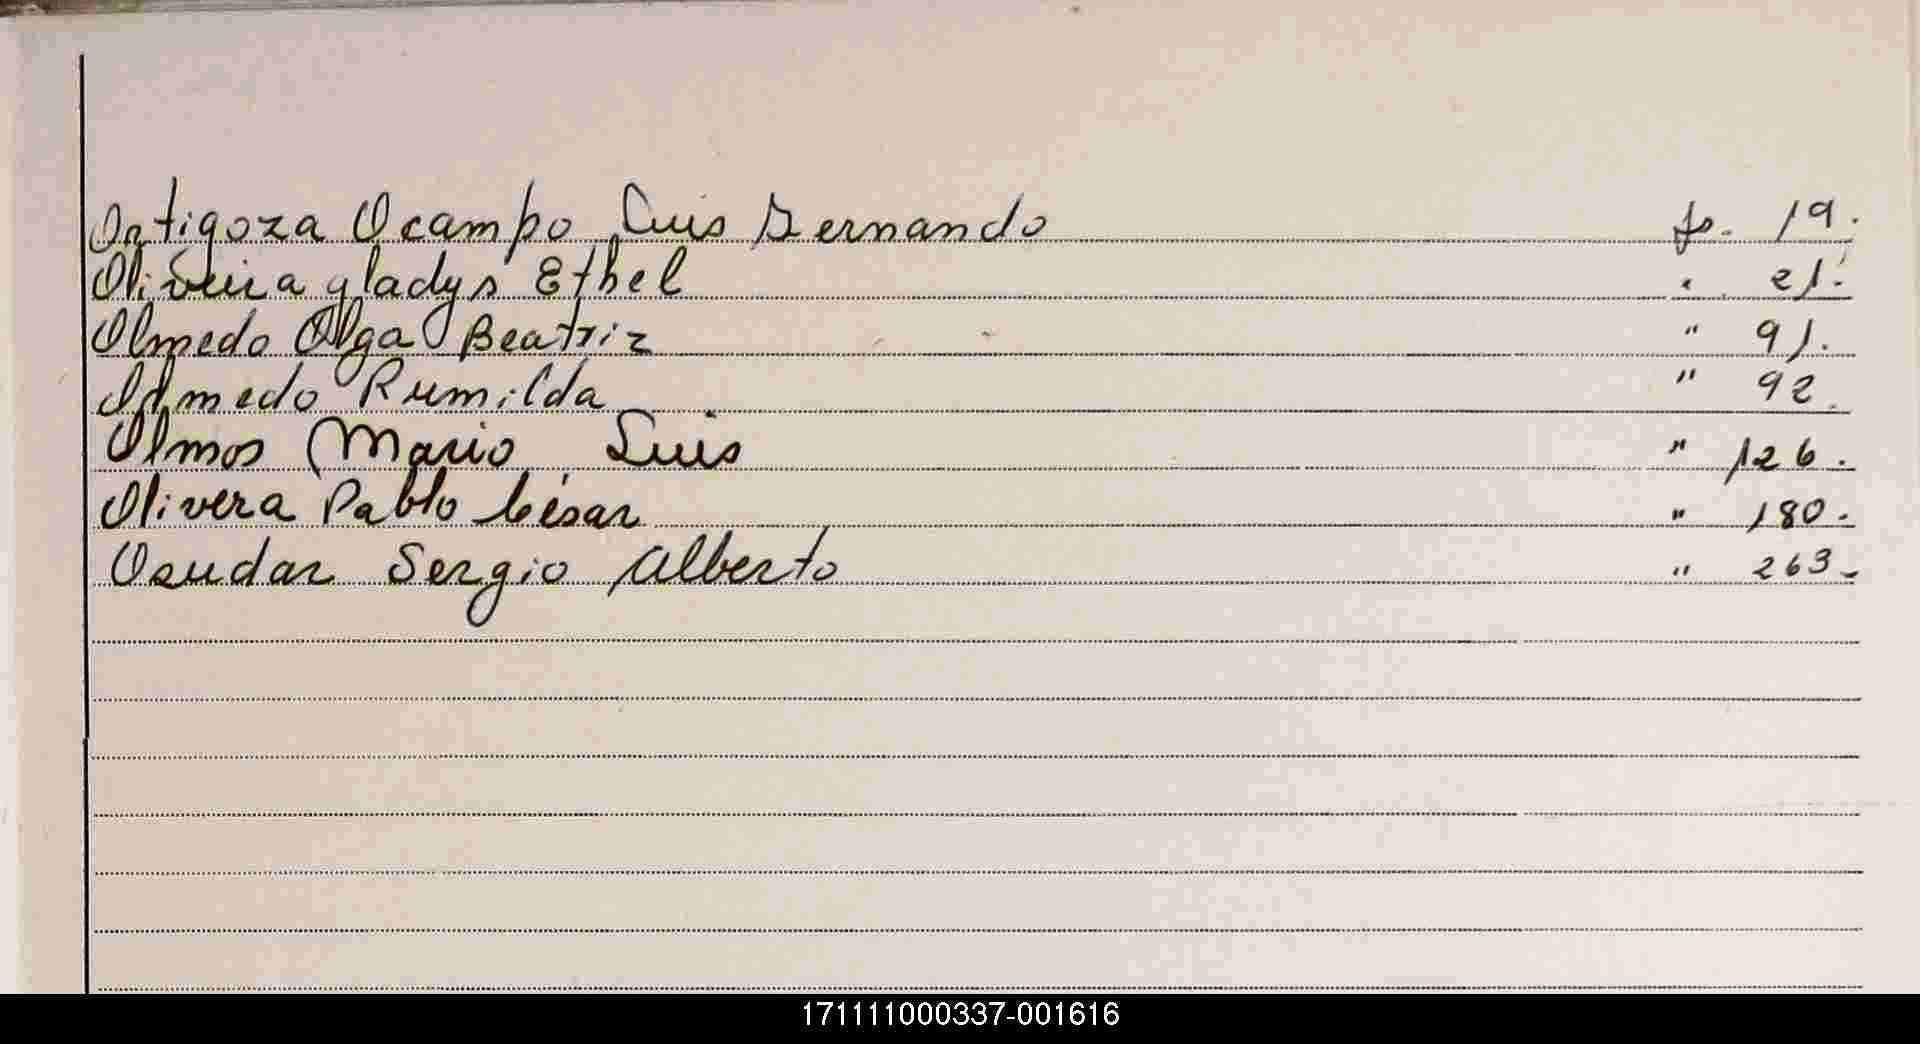 Ortigoza Ocampo Luis Fernando fs. 19.
Oliveira gladys Ethel " 21.
Olmedo Olga Beatriz " 91.
Olmedo Rumilda " 92.
Olmos Mario Luis " 126.
Olivera Pablo César " 180.
Sergio Alberto " 263.
171111000337-001616